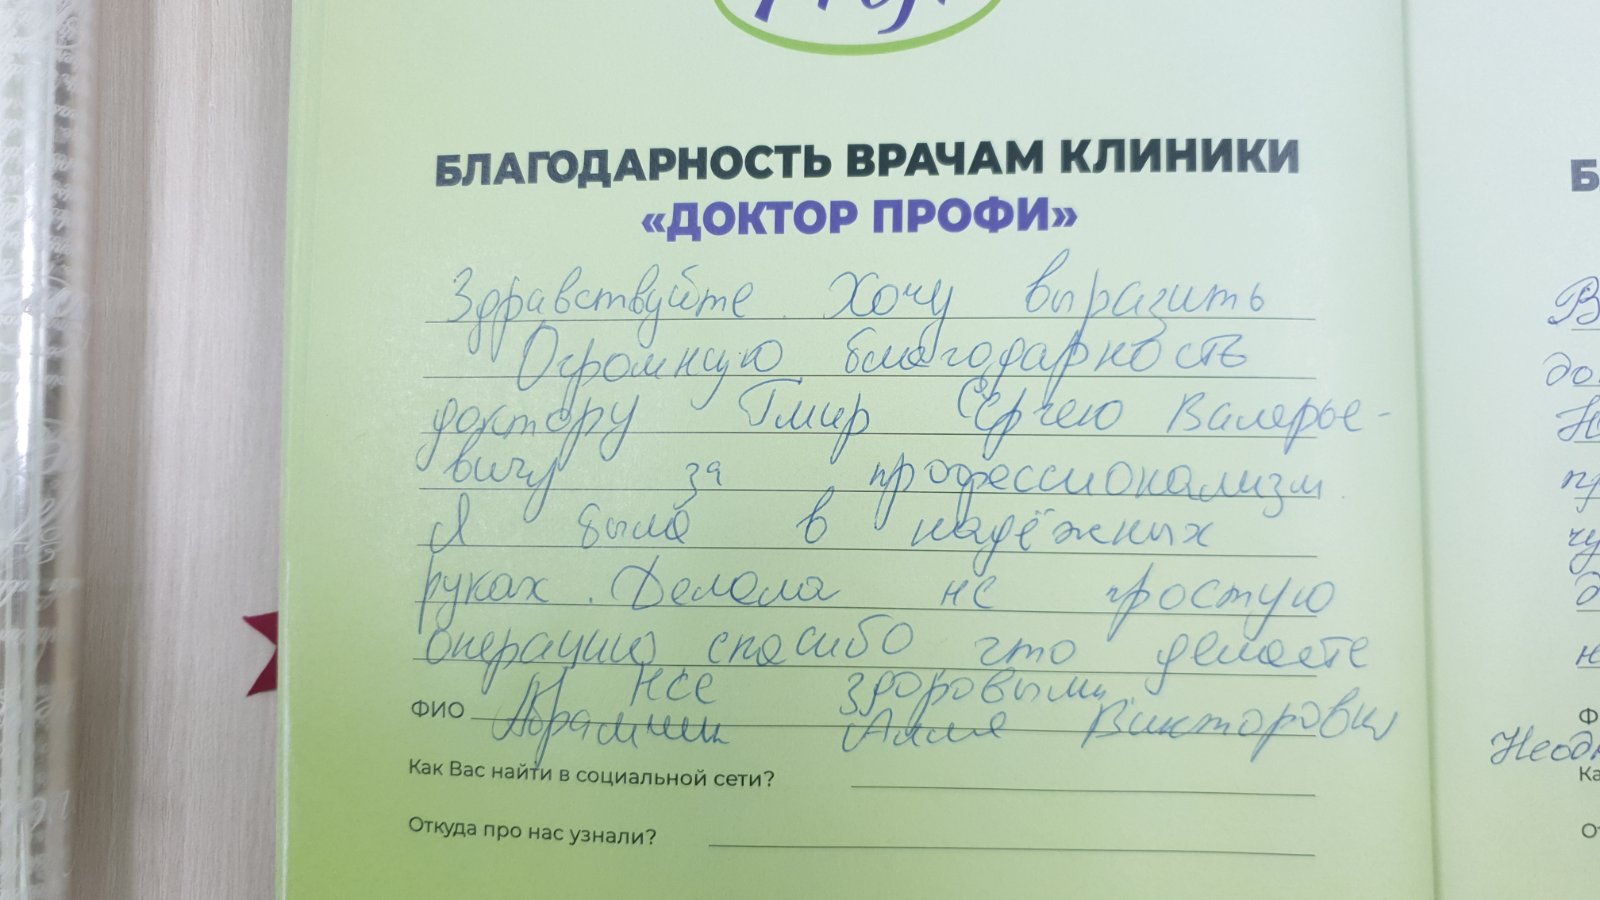 Profi
БЛАГОДАРНОСТЬ ВРАЧАМ КЛИНИКИ
«ДОКТОР ПРОФИ»
Здравствуйте. Хочу выразить
Огромную благодарность
доктору Гмир Сергею Валерье-
вичу за профессионализм.
Я была в надёжных
руках. Делала не простую
операцию спасибо что делаете
нсе здоровыми.
ФИО Абрамчик Алла Викторовна
Как Вас найти в социальной сети?
Откуда про нас узнали?